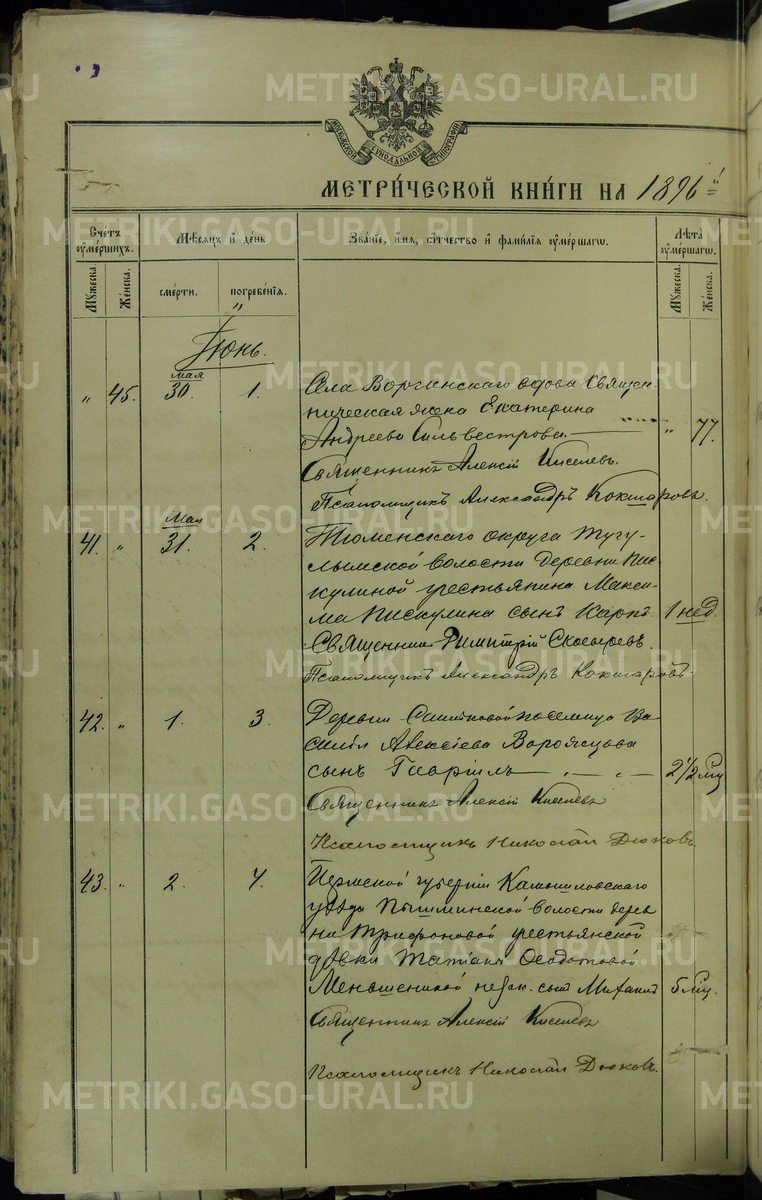 МОСКОВСКОЙ СѴНОДАЛЬНОЙ ТИПОГРАФІИ
МЕТРИ́ЧЕСКОЙ КНИ́ГИ НА 1896
Счетъ ᲂумершихъ.
Мѣсяцъ и день
Званіе, имя, ѻтчество и фамилія ᲂумершагѡ.
Лѣта ᲂумершагѡ.
Мужеска.
Женска.
смерти.
погребенія.
Мужеска.
Женска.
Іюнь.
" 45. мая 30. 1. Села Воргинскаго вдова Священ-
ническая жена Екатерина
Андреева Сильвестрова. " 77.
Священникъ Алексій Киселевъ.
Псаломщикъ Александръ Кокшаровъ.
41. " мая 31. 2. Тюменскаго округа Тугу-
лымской волости деревни Пис-
кулиной крестьянина Макси-
ма Пискулина сынъ Карпъ. 1 нед.
Священникъ Димитрій
Псаломщикъ Александръ Кокшаровъ.
42. " 1. 3. Деревни поселенца Ва-
силія Алексіева
сынъ Гавріилъ 2 1/2 мц
Священникъ Алексій Киселевъ
Псаломщикъ Николай Дюковъ.
43. " 2. 4. Пермской губерніи Камышловскаго
уѣзда Пышминской волости дерев
ни Трифоновой крестьянской
дѣвки Татіаны Ѳеодотовой
Меньшениной незак. сынъ Михаилъ 5 мц.
Священникъ Алексій Киселевъ
Псаломщикъ Николай Дюковъ.
METRIKI.GASO-URAL.RU